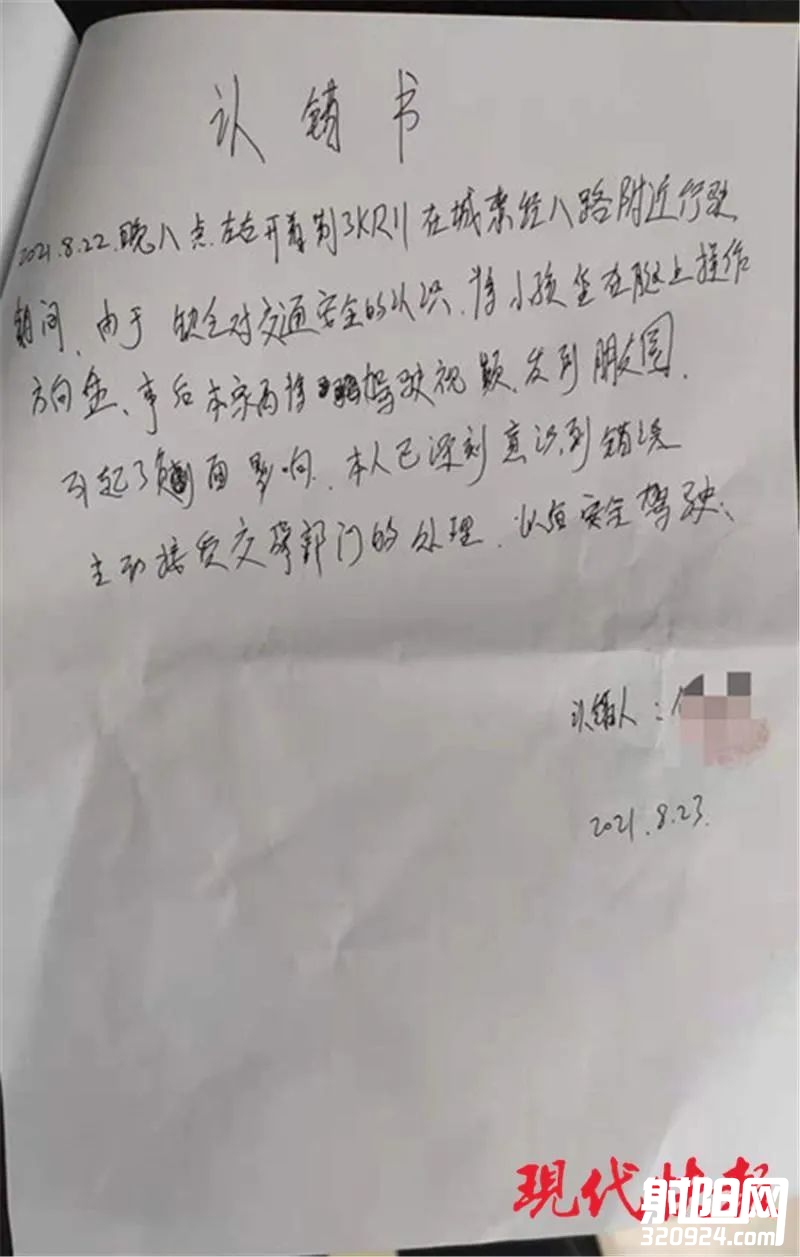 认错书
2021.8.22.晚八点左右开着 3KR11在城东经八路附近行驶
期间,由于缺乏对交通安全的认识,将小孩坐在腿上操作
方向盘、事后本家再将驾驶视频,发到朋友圈,
引起了负面影响,本人已深刻意识到错误
主动接受交警部门的处理,以后安全驾驶、
认错人:
2021.8.23.
现代快报
射阳网
320924.com